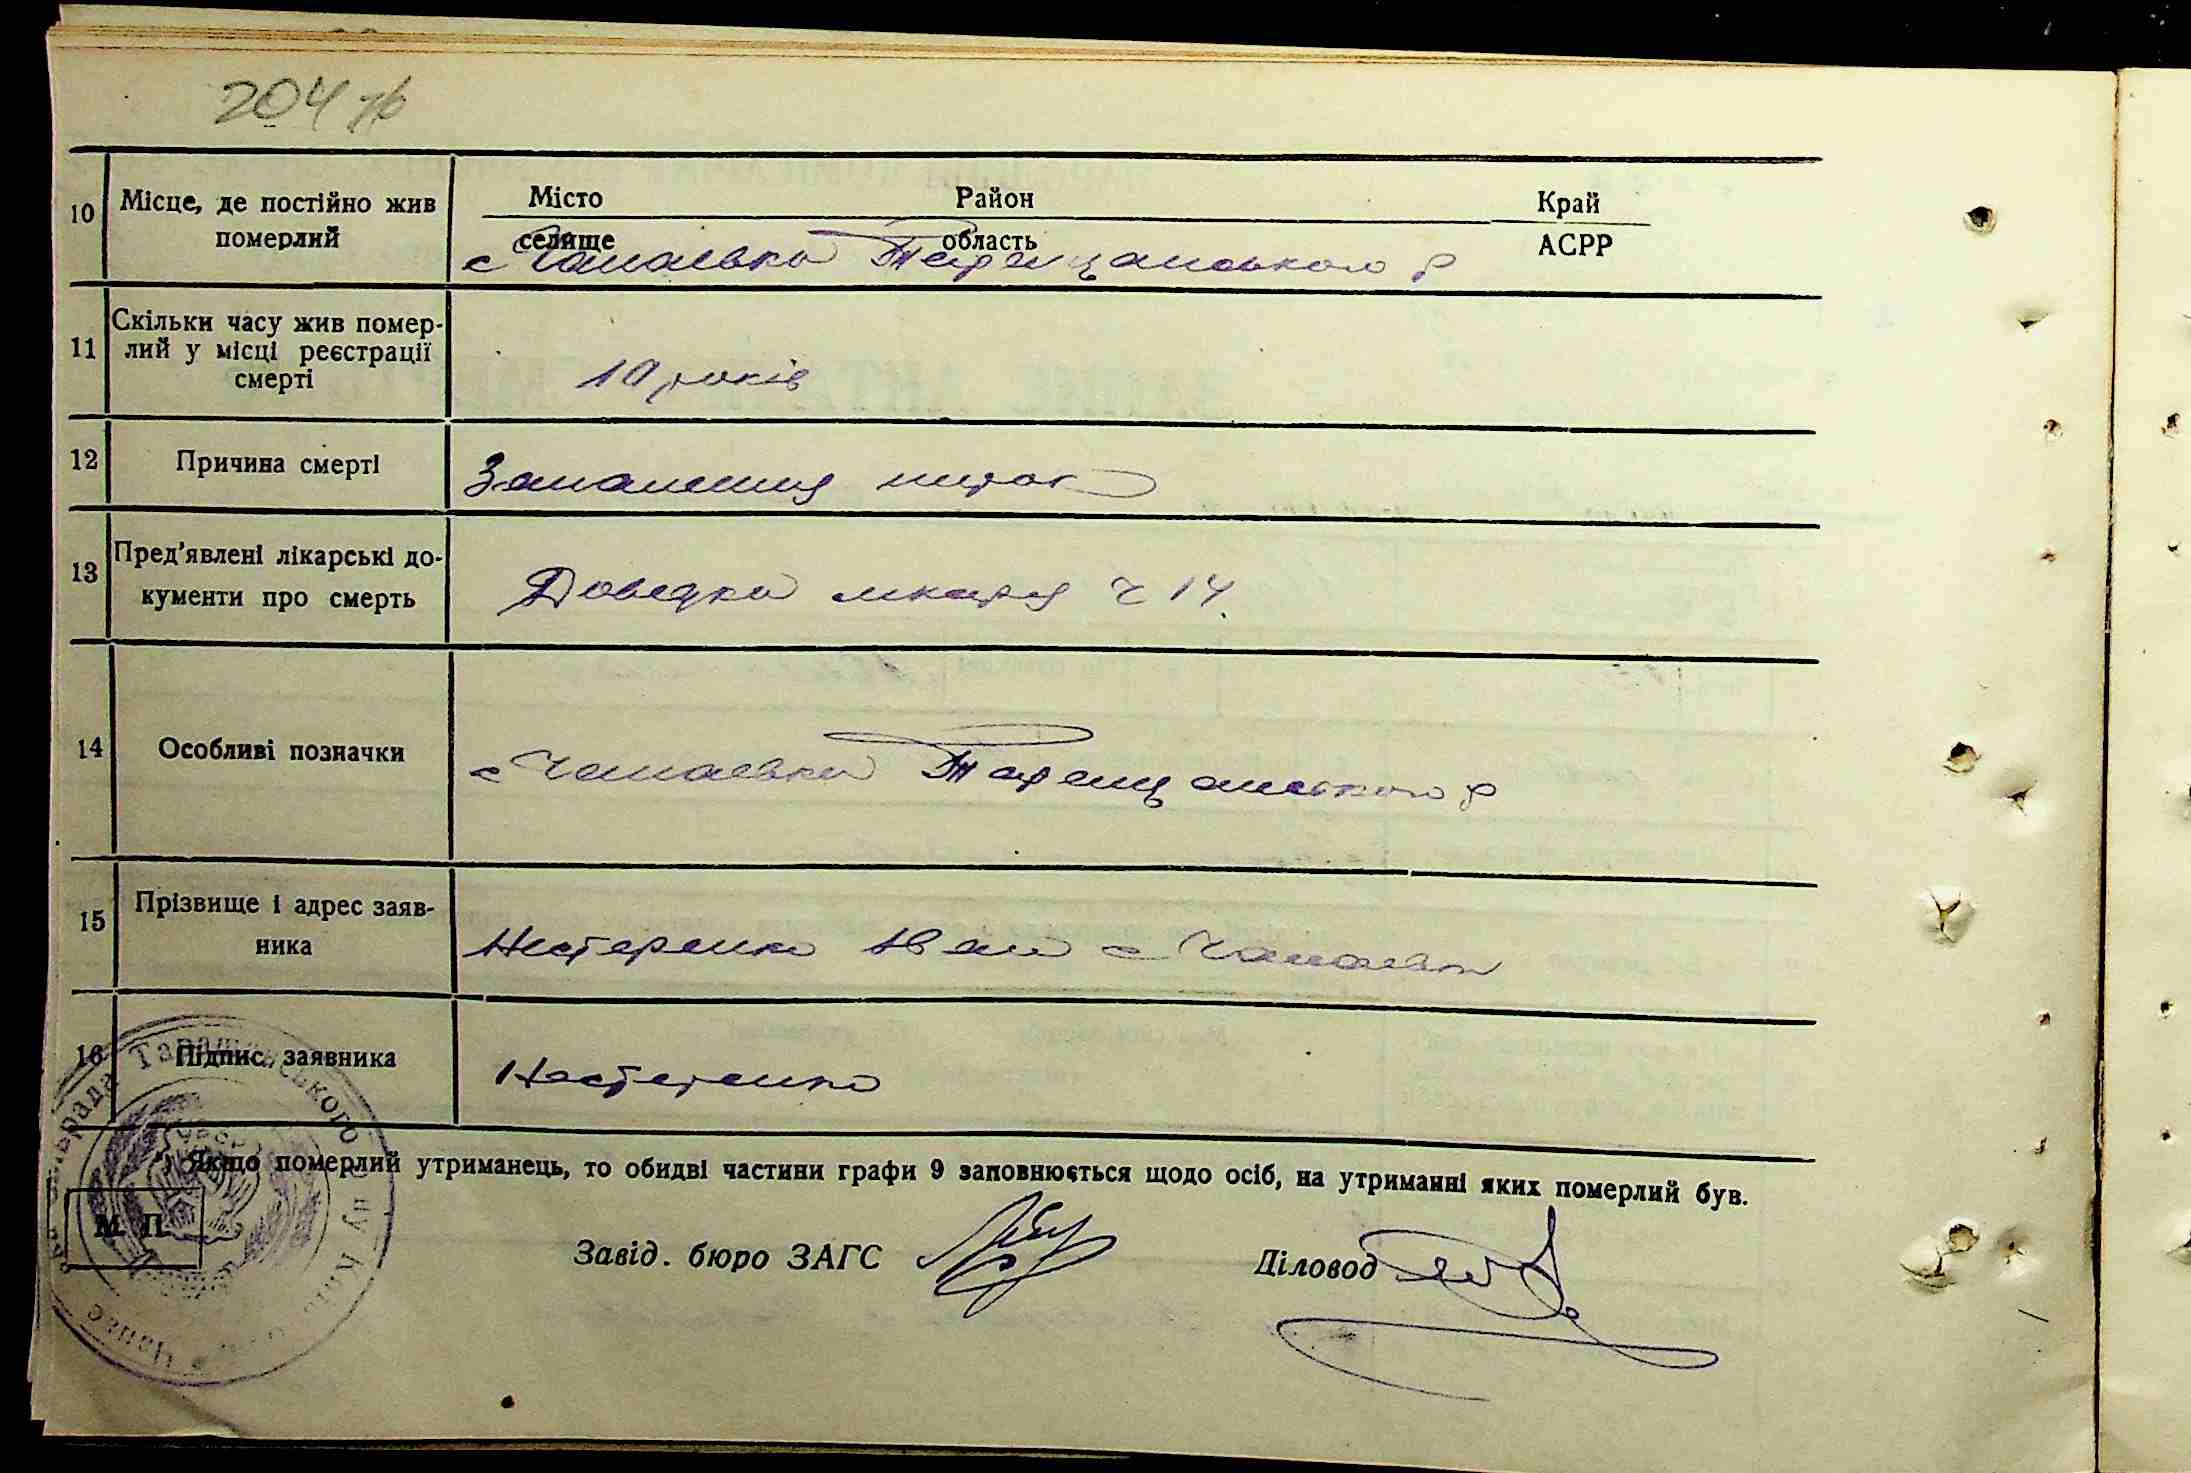 204 зв
10 Місце, де постійно жив померлий
Місто Район Край
селище область АСРР
с Чапаєвка Таращанського р
11 Скільки часу жив померлий у місці реєстрації смерті
10 років
12 Причина смерті
Запалення нирок
13 Пред'явлені лікарські документи про смерть
Довідка лікаря ч 14.
14 Особливі позначки
с Чапаєвка Таращанського р
15 Прізвище і адрес заявника
Нестеренко Іван с Чапаєвк
16 Підпис заявника
Нестеренко
*) Якщо померлий утриманець, то обидві частини графи 9 заповнюється щодо осіб, на утриманні яких померлий був.
М. П.
Завід. бюро ЗАГС
Діловод
Таращанського